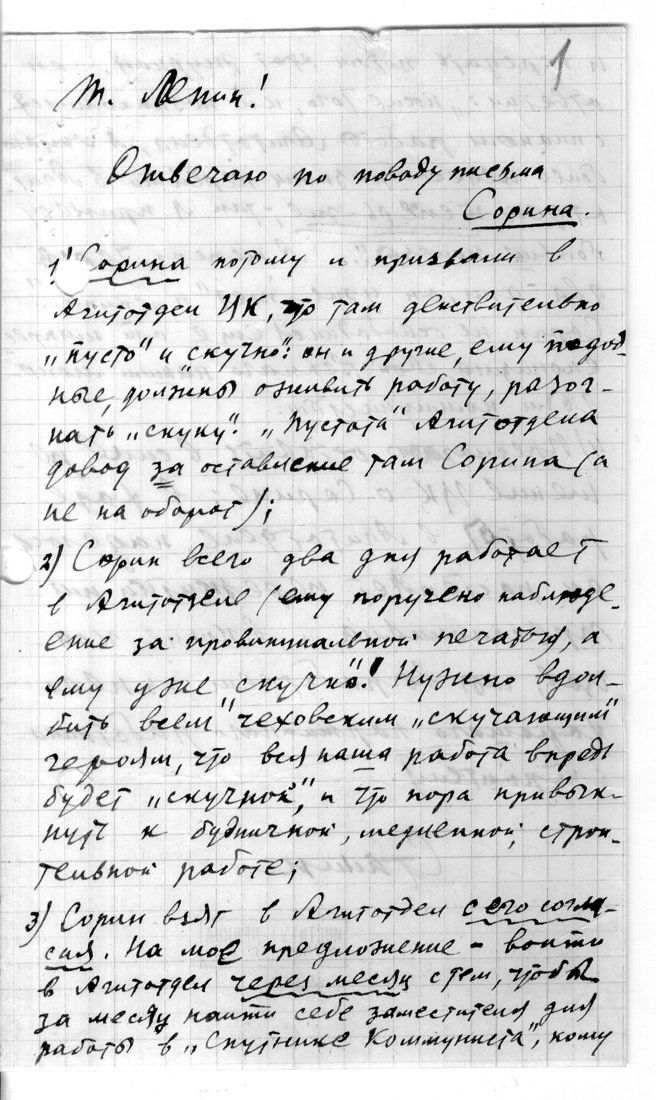 1
т. Ленин!
Отвечаю по поводу письма
Сорина.
1) Сорина потому и призвали в
Агитотдел ЦК, что там действительно
„пусто" и скучно": он и другие, ему подоб-
ные, должны оживить работу, разог-
нать „скуку". „Пустота" Агитотдела
довод за оставление там Сорина (а
не наоборот);
2) Сорин всего два дня работает
в Агитотделе (ему поручено наблюде-
ение за провинциальной печатью, а
ему уже скучно"! Нужно вдол-
бить всем" чеховским „скучающим"
героям, что вся наша работа впредь
будет „скучной", и что пора привык-
нуть к будничной, медленной, строи-
тельной работе;
3) Сорин взят в Агитотдел с его согла-
сия. На мое предложение – войти
в Агитотдел через месяц с тем, чтобы
за месяц найти себе заместителя для
работы в „Спутнике Коммуниста", кому